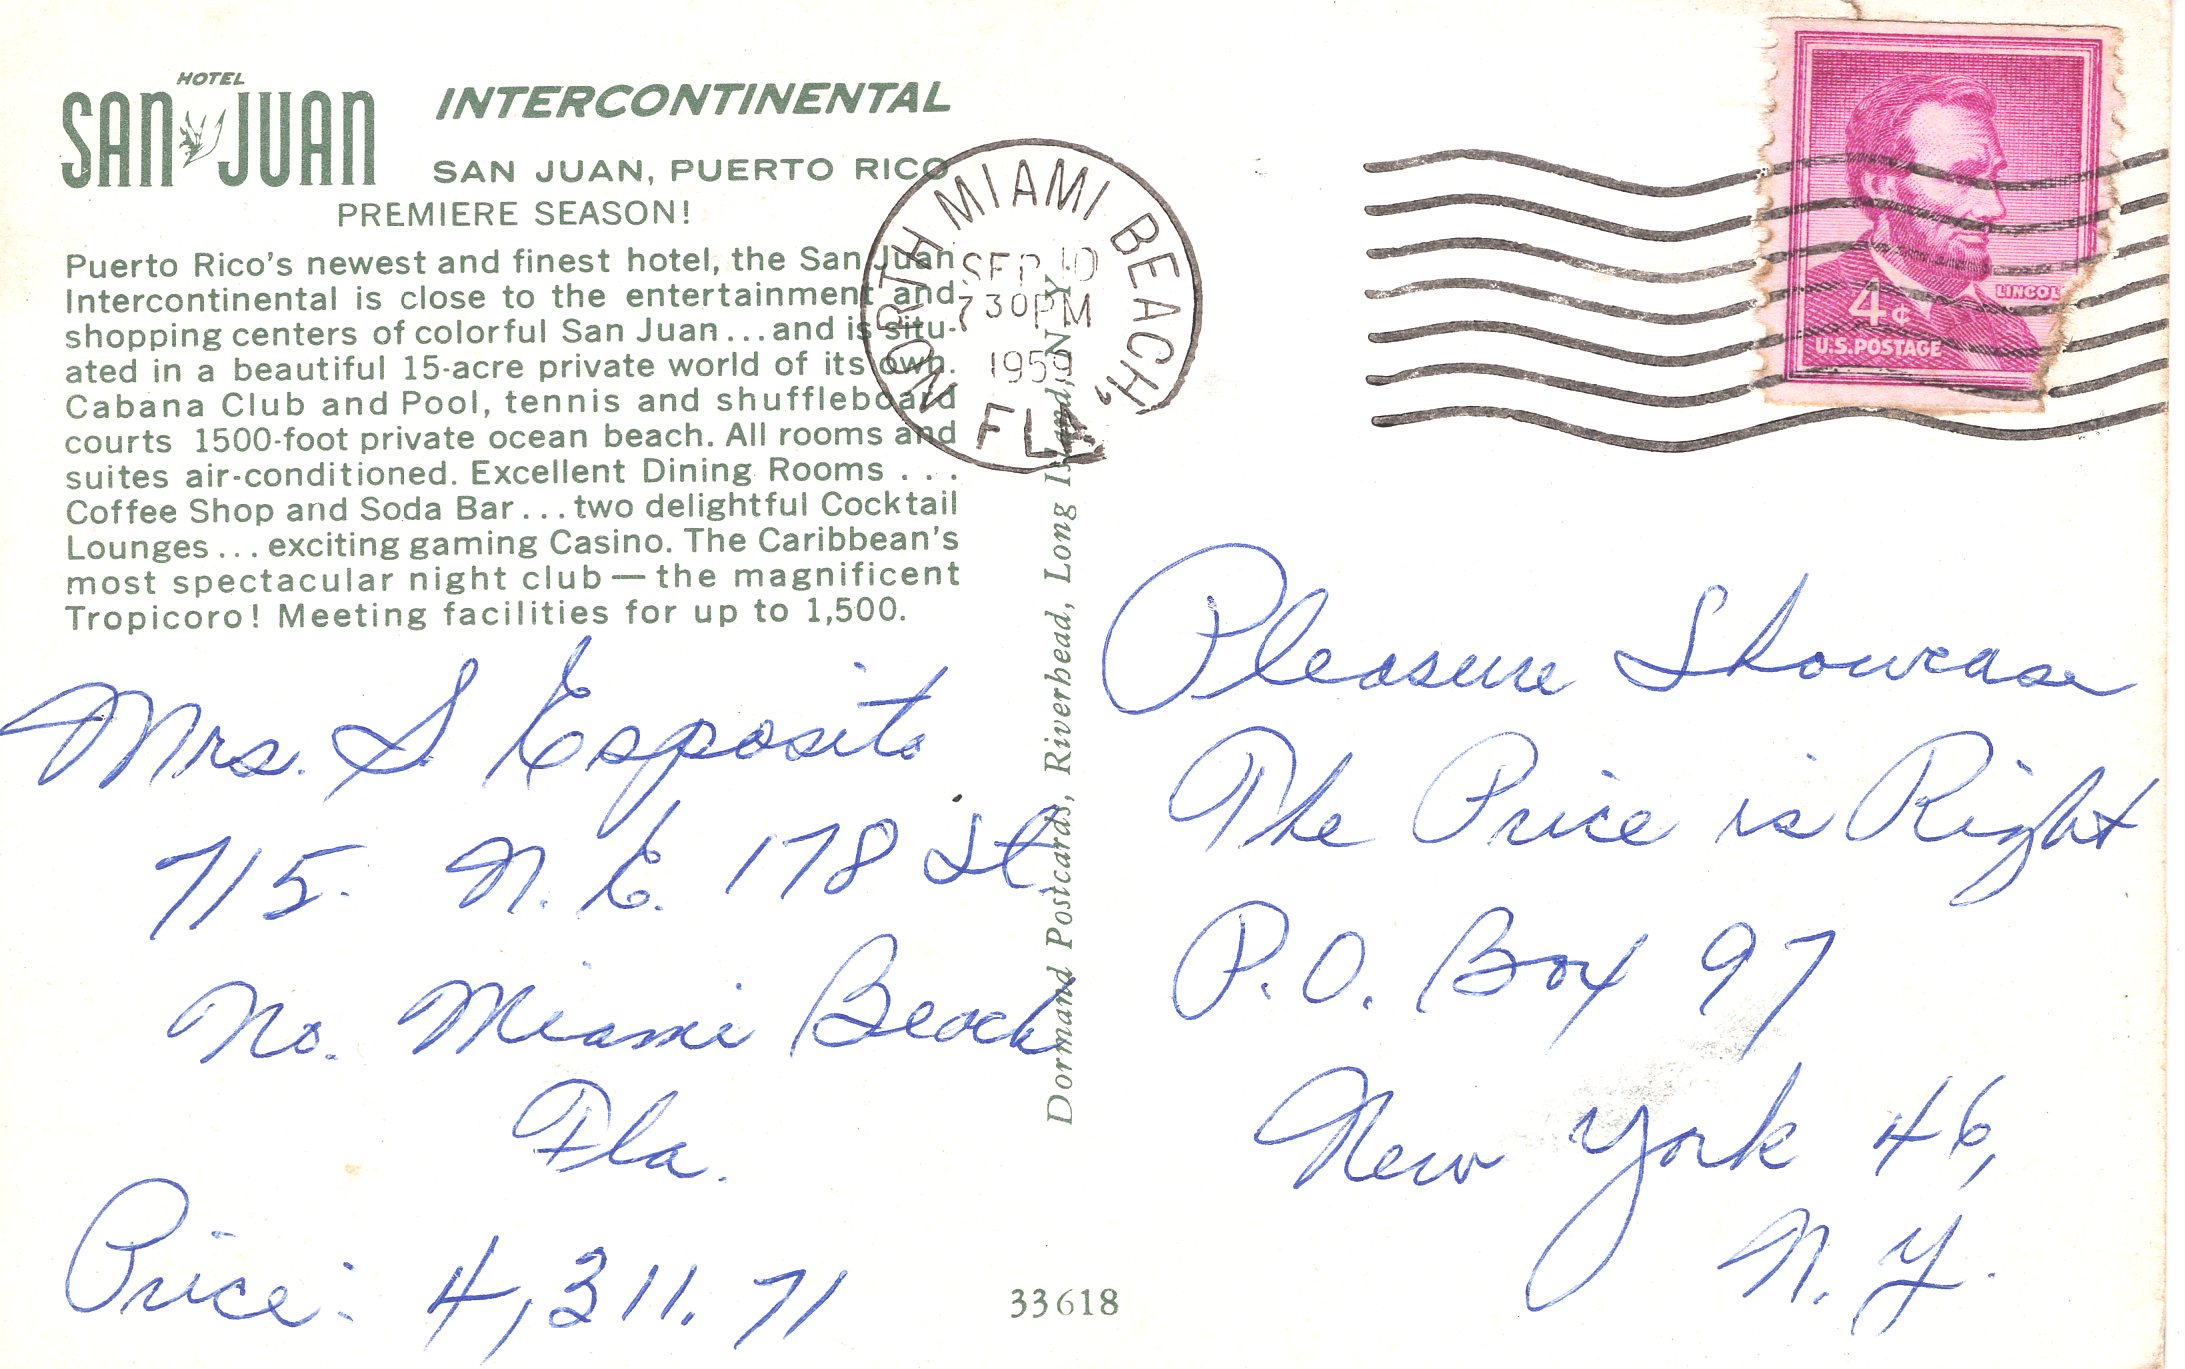 HOTEL
SAN JUAN
INTERCONTINENTAL
SAN JUAN, PUERTO RICO
PREMIERE SEASON!
Puerto Rico's newest and finest hotel, the San Juan
Intercontinental is close to the entertainment and
shopping centers of colorful San Juan...and is situ-
ated in a beautiful 15-acre private world of its own.
Cabana Club and Pool, tennis and shuffleboard
courts 1500-foot private ocean beach. All rooms and
suites air-conditioned. Excellent Dining Rooms ...
Coffee Shop and Soda Bar...two delightful Cocktail
Lounges...exciting gaming Casino. The Caribbean's
most spectacular night club—the magnificent
Tropicoro! Meeting facilities for up to 1,500.
Mrs. S. Esposito
715 N.E. 178 St.
No. Miami Beach
Fla.
Price: 4,311.71
Dormand Postcards, Riverhead, Long Island, N.Y.
33618
NORTH MIAMI BEACH, FLA.
SEP 10
7 30 PM
1959
LINCOLN
4¢
U.S. POSTAGE
Pleasure Showcase
The Price is Right
P.O. Box 97
New York 46,
N.Y.